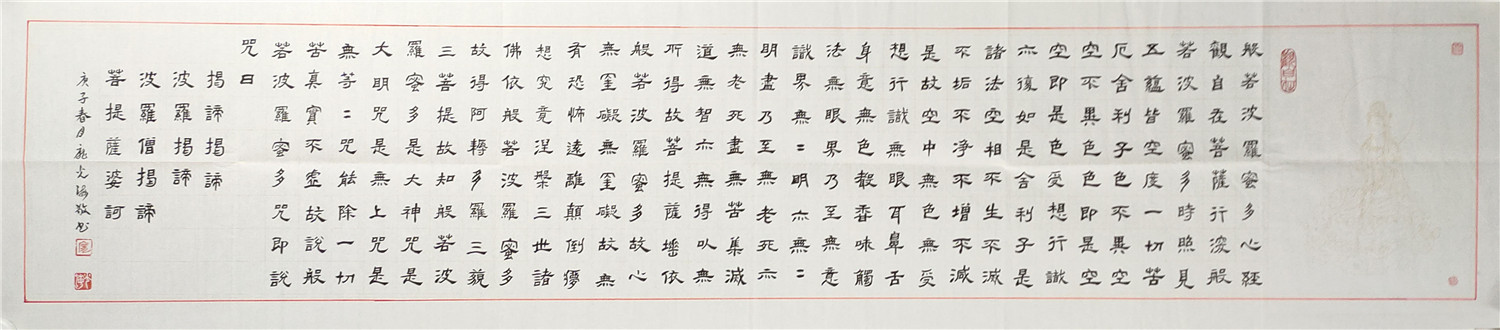 般若波羅蜜多心經
觀自在菩薩行深般
若波羅蜜多時照見
五蘊皆空度一切苦
厄舍利子色不異空
空不異色色即是空
空即是色受想行識
亦復如是舍利子是
諸法空相不生不滅
不垢不净不增不減
是故空中無色無受
想行識無眼耳鼻舌
身意無色聲香味觸
法無眼界乃至無意
識界無二明亦無二
明盡乃至無老死亦
無老死盡無苦集滅
道無智亦無得以無
所得故菩提薩埵依
般若波羅蜜多故心
無罣礙無罣礙故無
有恐怖遠離顛倒夢
想究竟涅槃三世諸
佛依般若波羅蜜多
故得阿耨多羅三藐
三菩提故知般若波
羅蜜多是大神咒是
大明咒是無上咒是
無等二咒能除一切
苦真實不虛故說般
若波羅蜜多咒即說
咒曰
揭諦揭諦
波羅揭諦
波羅僧揭諦
菩提薩婆訶
庚子春月龍光海敬書